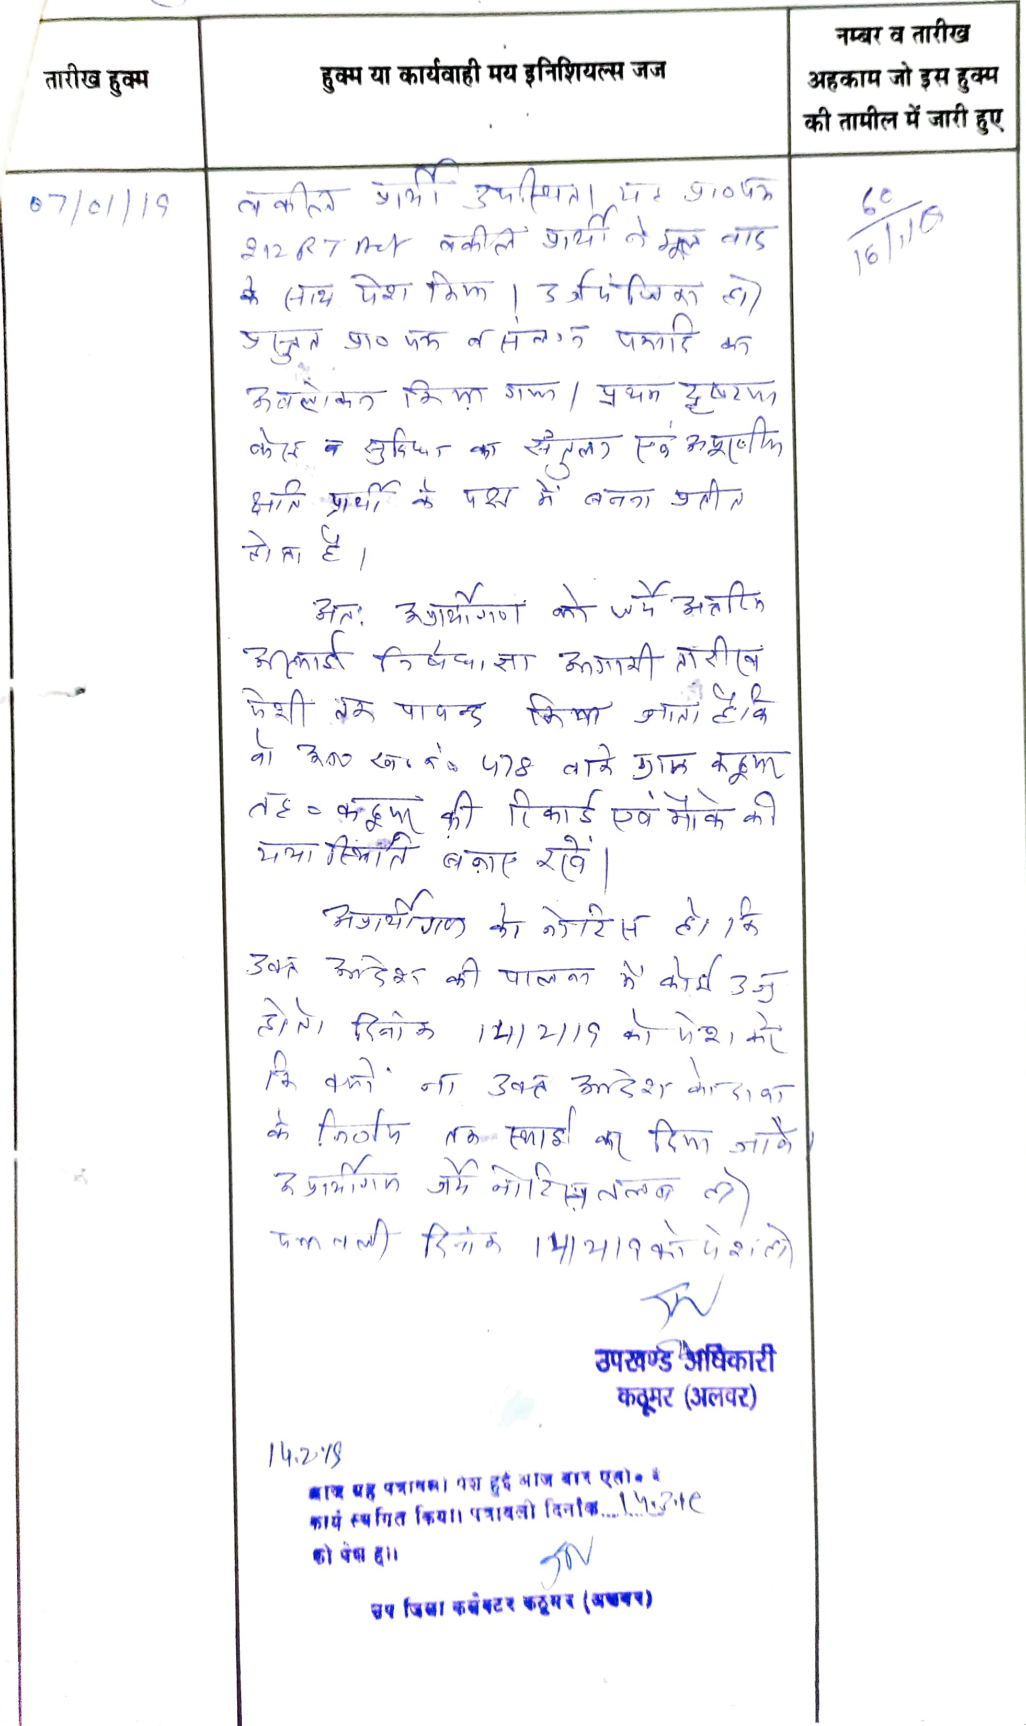 तारीख हुक्म
हुक्म या कार्यवाही मय इनिशियल्स जज
नम्बर व तारीख
अहकाम जो इस हुक्म
की तामील में जारी हुए
07/01/19
वकील प्रार्थी उपस्थित। यह प्रा०पत्र
212 RT Act वकील प्रार्थी ने मूल वाद
के साथ पेश किया। दर्ज रजि० हो।
प्रस्तुत प्रा० पत्र व संलग्न पत्रादि का
अवलोकन किया गया। प्रथम दृष्टया
केस व सुविधा का संतुलन एवं अपूर्णीय
क्षति प्रार्थी के पक्ष में बनना प्रतीत
होता है।
अतः अप्रार्थीगण को जर्ये अन्तरिम
अस्थाई निषेधाज्ञा आगामी तारीख
पेशी तक पाबन्द किया जाता है कि
वो आ० ख० नं० 478 वाके ग्राम कठूमर
तह० कठूमर की रिकार्ड एवं मौके की
यथा स्थिति बनाए रखें।
अप्रार्थीगण को नोटिस हो कि
उक्त आदेश की पालना में कोई उज्र
हो तो दिनांक 14/2/19 को पेश करे
कि क्यों ना उक्त आदेश को दावा
के निर्णय तक स्थाई कर दिया जावे।
अप्रार्थीगण जर्ये नोटिस तलब हो।
पत्रावली दिनांक 14/2/19 को पेश हो।
60
16/1/19
उपखण्ड अधिकारी
कठूमर (अलवर)
14.2.19
आज यह पत्रावली पेश हुई आज बार एसो० ने
कार्य स्थगित किया। पत्रावली दिनांक
को पेश हो।
उप जिला कलेक्टर कठूमर (अलवर)